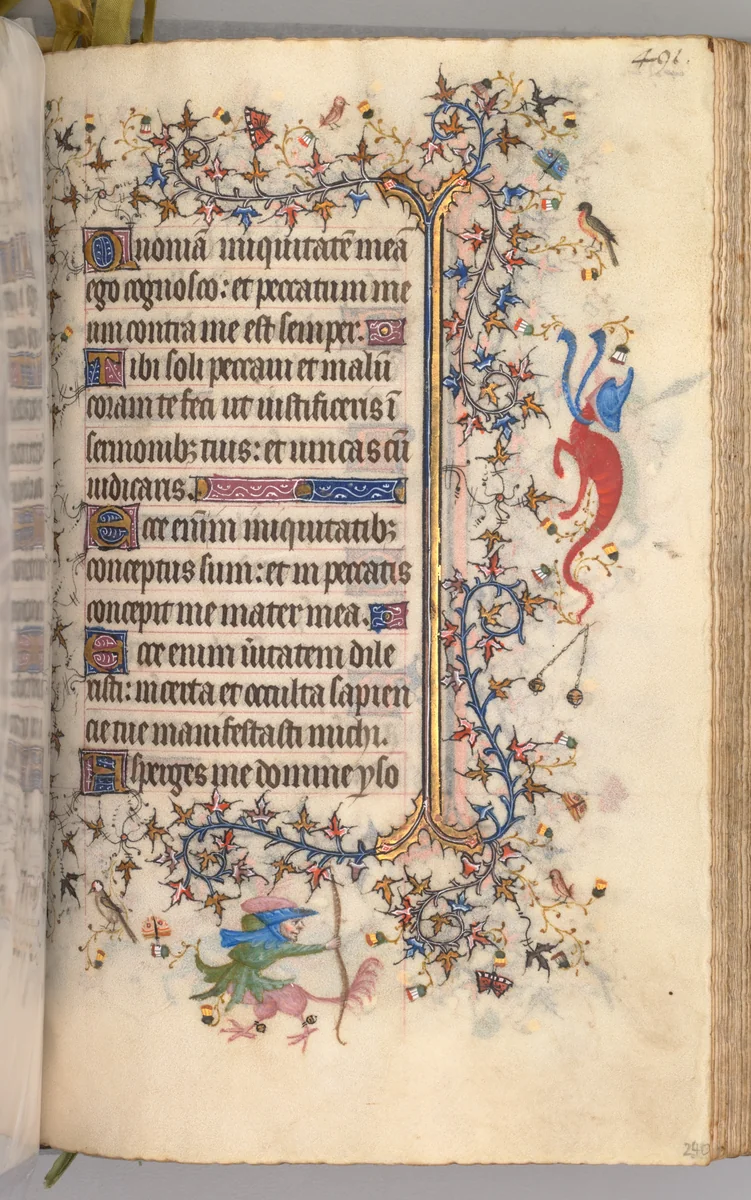 491.
Quoniā iniquitatē meā
ego cognosco: et peccatum me
um contra me est semper.
Tibi soli peccaui et malū
coram te feci ut iustificeris ī
sermonibꝫ tuis: et uincas cū
iudicaris.
Ecce enim iniquitatibꝫ
conceptus sum: et in peccatis
concepit me mater mea.
Ecce enim ūitatem dile
xisti: incerta et occulta sapien
cie tue manifestasti michi.
Asperges me domine yso
240